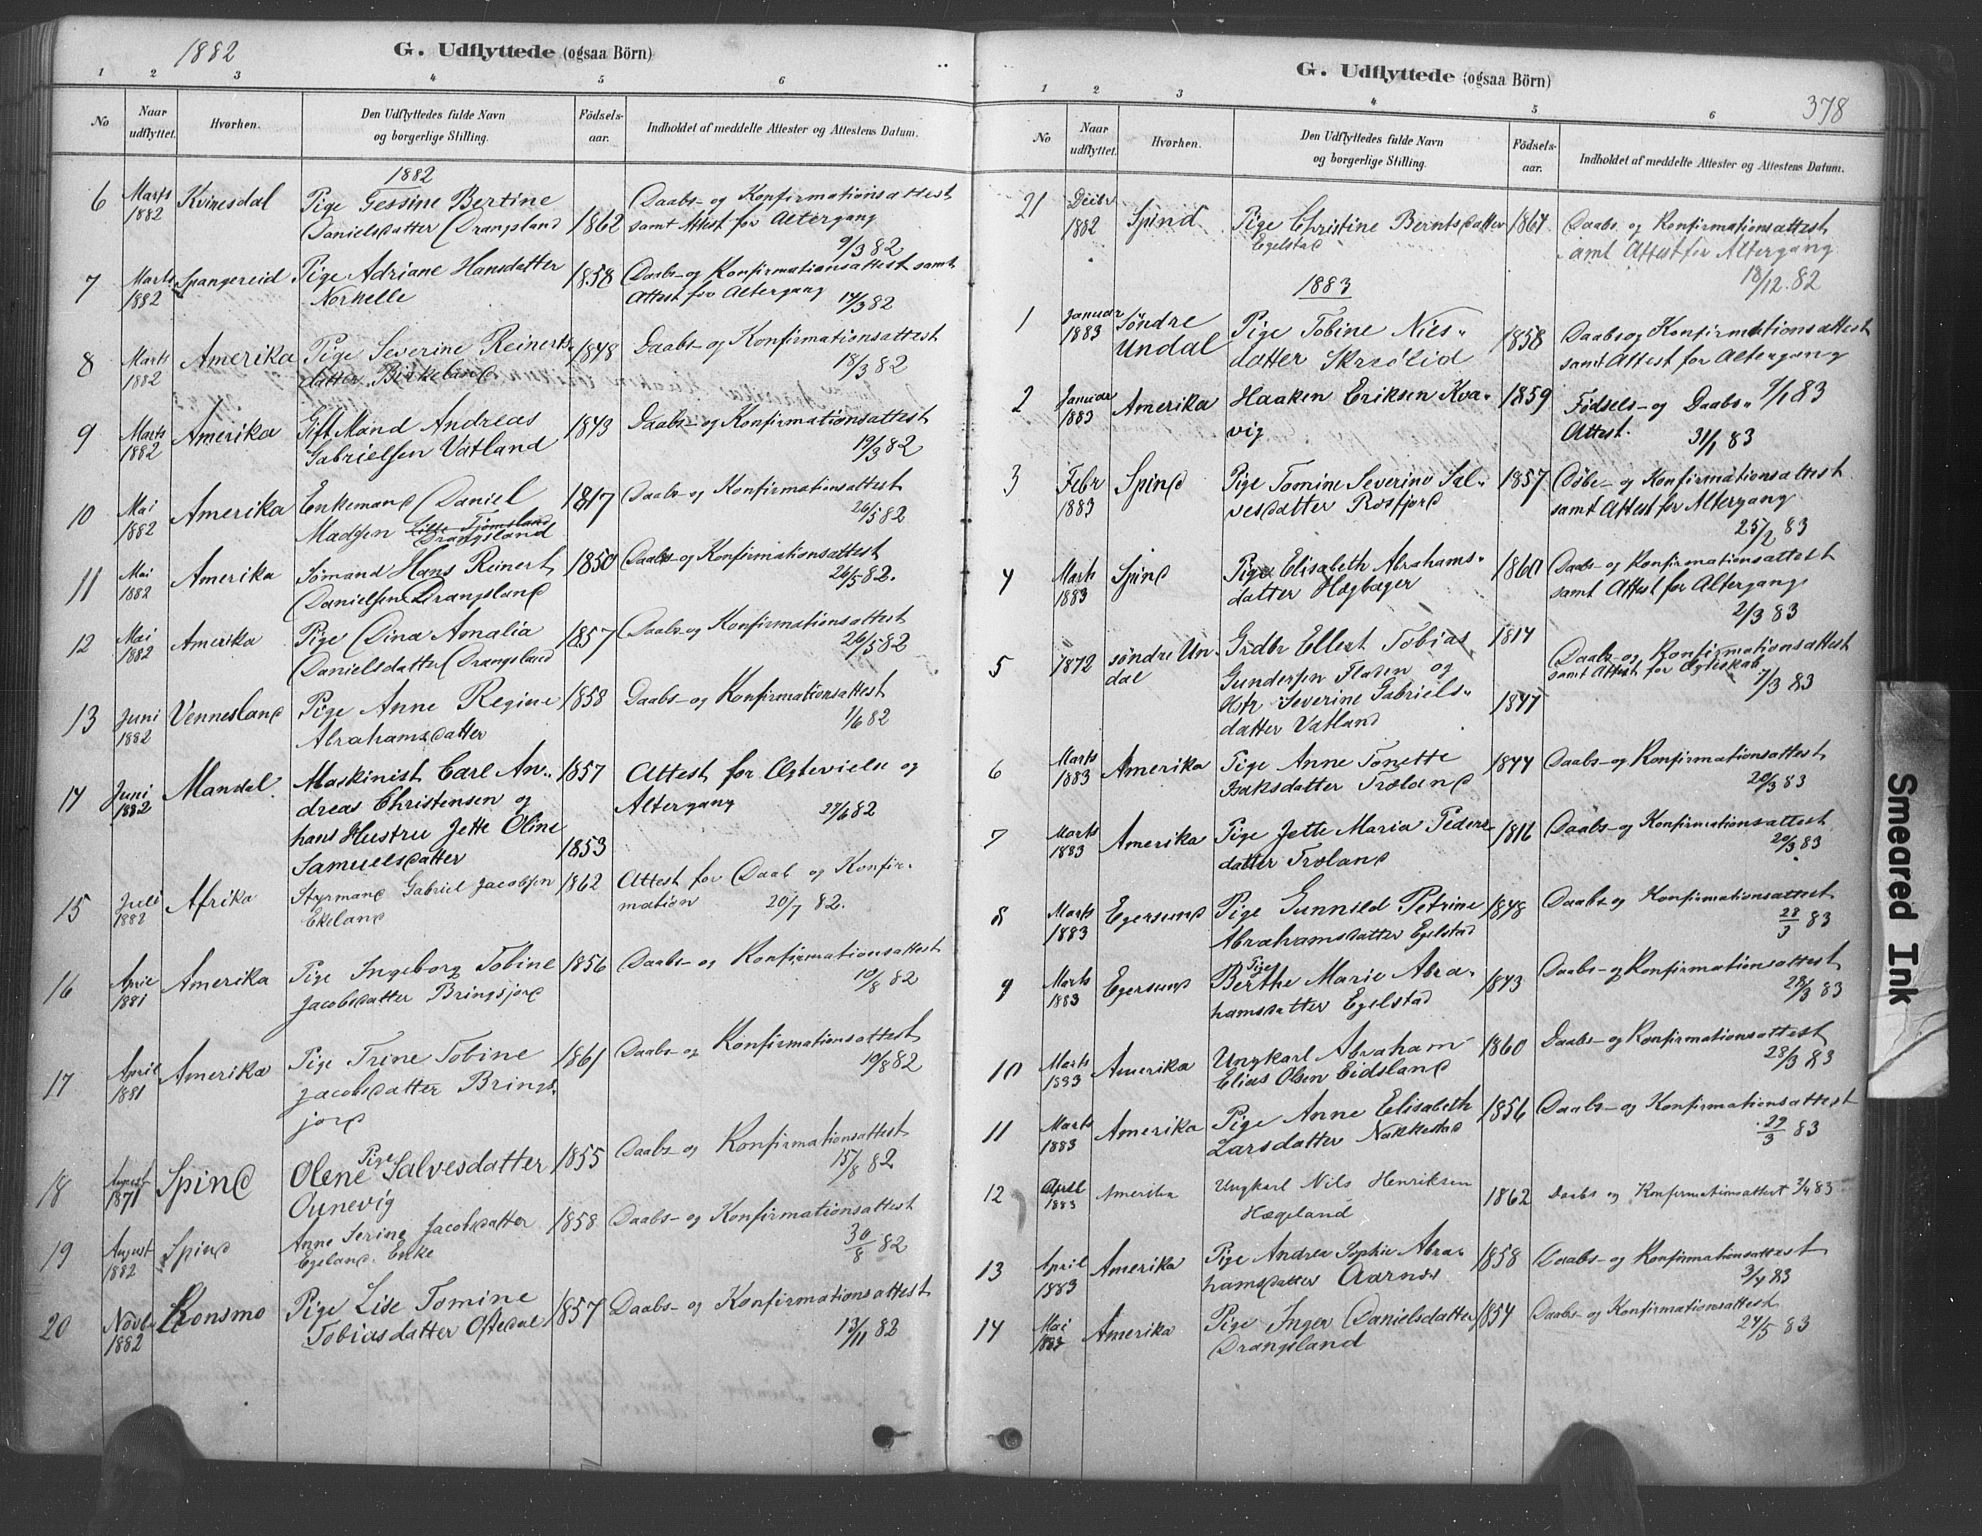 1882
G. Udflyttede (ogsaa Börn)
1 2 3 4 5 6
No
Naar udflyttet.
Hvorhen.
Den Udflyttedes fulde Navn og borgerlige Stilling.
Födsels-aar.
Indholdet af meddelte Attester og Attestens Datum.
1882
6 Marts 1882 Kvinesdal Pige Gessine Bertine Danielsdatter Drangsland 1862 Daabs- og Konfirmationsattest samt Attest for Altergang 9/3 82
7 Marts 1882 Spangereid Pige Adriane Hansdatter Norhelle 1858 Daabs- og Konfirmationsattest samt Attest for Altergang 14/3 82
8 Marts 1882 Amerika Pige Severine Reinerts- datter Birkeland 1848 Daabs- og Konfirmationsattest 18/3 82
9 Marts 1882 Amerika Gift Mand Andreas Gabrielsen Vatland 1843 Daabs- og Konfirmationsattest 19/3 82
10 Mai 1882 Amerika Enkemand Daniel Madssen Lille Tjømsland Drangsland 1817 Daabs- og Konfirmationsattest 26/5 82
11 Mai 1882 Amerika Sømand Hans Reinert Danielsen Drangsland 1850 Daabs- og Konfirmationsattest 26/5 82.
12 Mai 1882 Amerika Pige Dina Amalia Danielsdatter Drangsland 1857 Daabs- og Konfirmationsattest 26/5 82
13 Juni 1882 Vennesland Pige Anne Regine Abrahamsdatter 1858 Daabs- og Konfirmationsattest 1/6 82
14 Juni 1882 Mandal. Maskinist Carl An- dreas Christensen og hans Hustru Jette Oline Samuelsdatter 1857 1853 Attest for Ægtevielse og Altergang 27/6 82
15 Juli 1882 Afrika Styrmand Gabriel Jacobsen Ekeland 1862 Attest for Daab og Konfir- mation 20/7 82.
16 April 1881 Amerika Pige Ingeborg Tobine Jacobsdatter Bringsjord 1856 Daabs- og Konfirmationsattest 10/8 82
17 April 1881 Amerika Pige Trine Tobine Jacobsdatter Brings- jord 1861 Daabs- og Konfirmationsattest 10/8 82
18 August 1871 Spind Pige Olene Salvesdatter Ounevig 1855 Daabs- og Konfirmationsattest 15/8 82
19 August 1882 Spind Anne Serine Jacobsdatter Egeland. Enke 1858 Daabs- og Konfirmationsattest 30/8 82
20 Novbr 1882 Konsmo Pige Lise Tomine Tobiasdatter Oftedal 1857 Daabs- og Konfirmationsattest 13/11 82
G. Udflyttede (ogsaa Börn)
378
1 2 3 4 5 6
No
Naar udflyttet.
Hvorhen.
Den Udflyttedes fulde Navn og borgerlige Stilling.
Födsels-aar.
Indholdet af meddelte Attester og Attestens Datum.
21 Decbr 1882 Spind Pige Christine Berntsdatter Egelstad 1864 Daabs og Konfirmationsattest samt Attest for Altergang 18/12. 82
1883
1 Januar 1883 Søndre Undal Pige Tobine Niels- datter Skrøilid 1858 Daabs og Konfirmationsattest samt Attest for Altergang 9/1 83
2 Januar 1883 Amerika Haaken Eriksen Kva- vig 1859 Fødsels- og Daabs- Attest. 31/1 83
3 Febr 1883 Spind Pige Tomine Severine Sal- vesdatter Rosfjord 1857 Døbe- og Konfirmationsattest samt Attest for Altergang 25/2 83
4 Marts 1883 Spind Pige Elisabeth Abrahams- datter Høgbager 1860 Daabs- og Konfirmationsattest samt Attest for Altergang 2/3 83
5 1872 søndre Un- dal Grdbr Ellert Tobias Gundersen Fladen og Hstr Severine Gabriels- datter Vatland 1814 1847 Daabs- og Konfirmationsattest samt Attest for Ægteskab 7/3 83
6 Marts 1883 Amerika Pige Anne Tonette Isaksdatter Trøland 1844 Daabs- og Konfirmationsattest 20/3 83
7 Marts 1883 Amerika Pige Jette Maria Peders- datter Trøland 1816 Daabs- og Konfirmationsattest 20/3 83
8 Marts 1883 Egersund Pige Gunnild Petrine Abrahamsdatter Egelstad 1848 Daabs- og Konfirmationsattest 28/3 83
9 Marts 1883 Egersund Pige Berthe Marie Abra- hamsdatter Egelstad 1843 Daabs- og Konfirmationsattest 28/3 83
10 Marts 1883 Amerika Ungkarl Abraham Elias Olsen Eidsland 1860 Daabs- og Konfirmationsattest 28/3 83
11 Marts 1883 Amerika Pige Anne Elisabeth Larsdatter Nakkestad 1856 Daabs- og Konfirmationsattest 29/3 83
12 April 1883 Amerika Ungkarl Nils Henriksen Hægeland 1862 Daabs og Konfirmationsattest 2/4 83
13 April 1883 Amerika Pige Andrea Sophie Abra- hamsdatter Aarnes 1858 Daabs- og Konfirmationsattest 3/4 83
14 Mai 1883 Amerika Pige Inger Danielsdatter Drangsland 1854 Daabs- og Konfirmationsattest 24/5 83
Smeared Ink